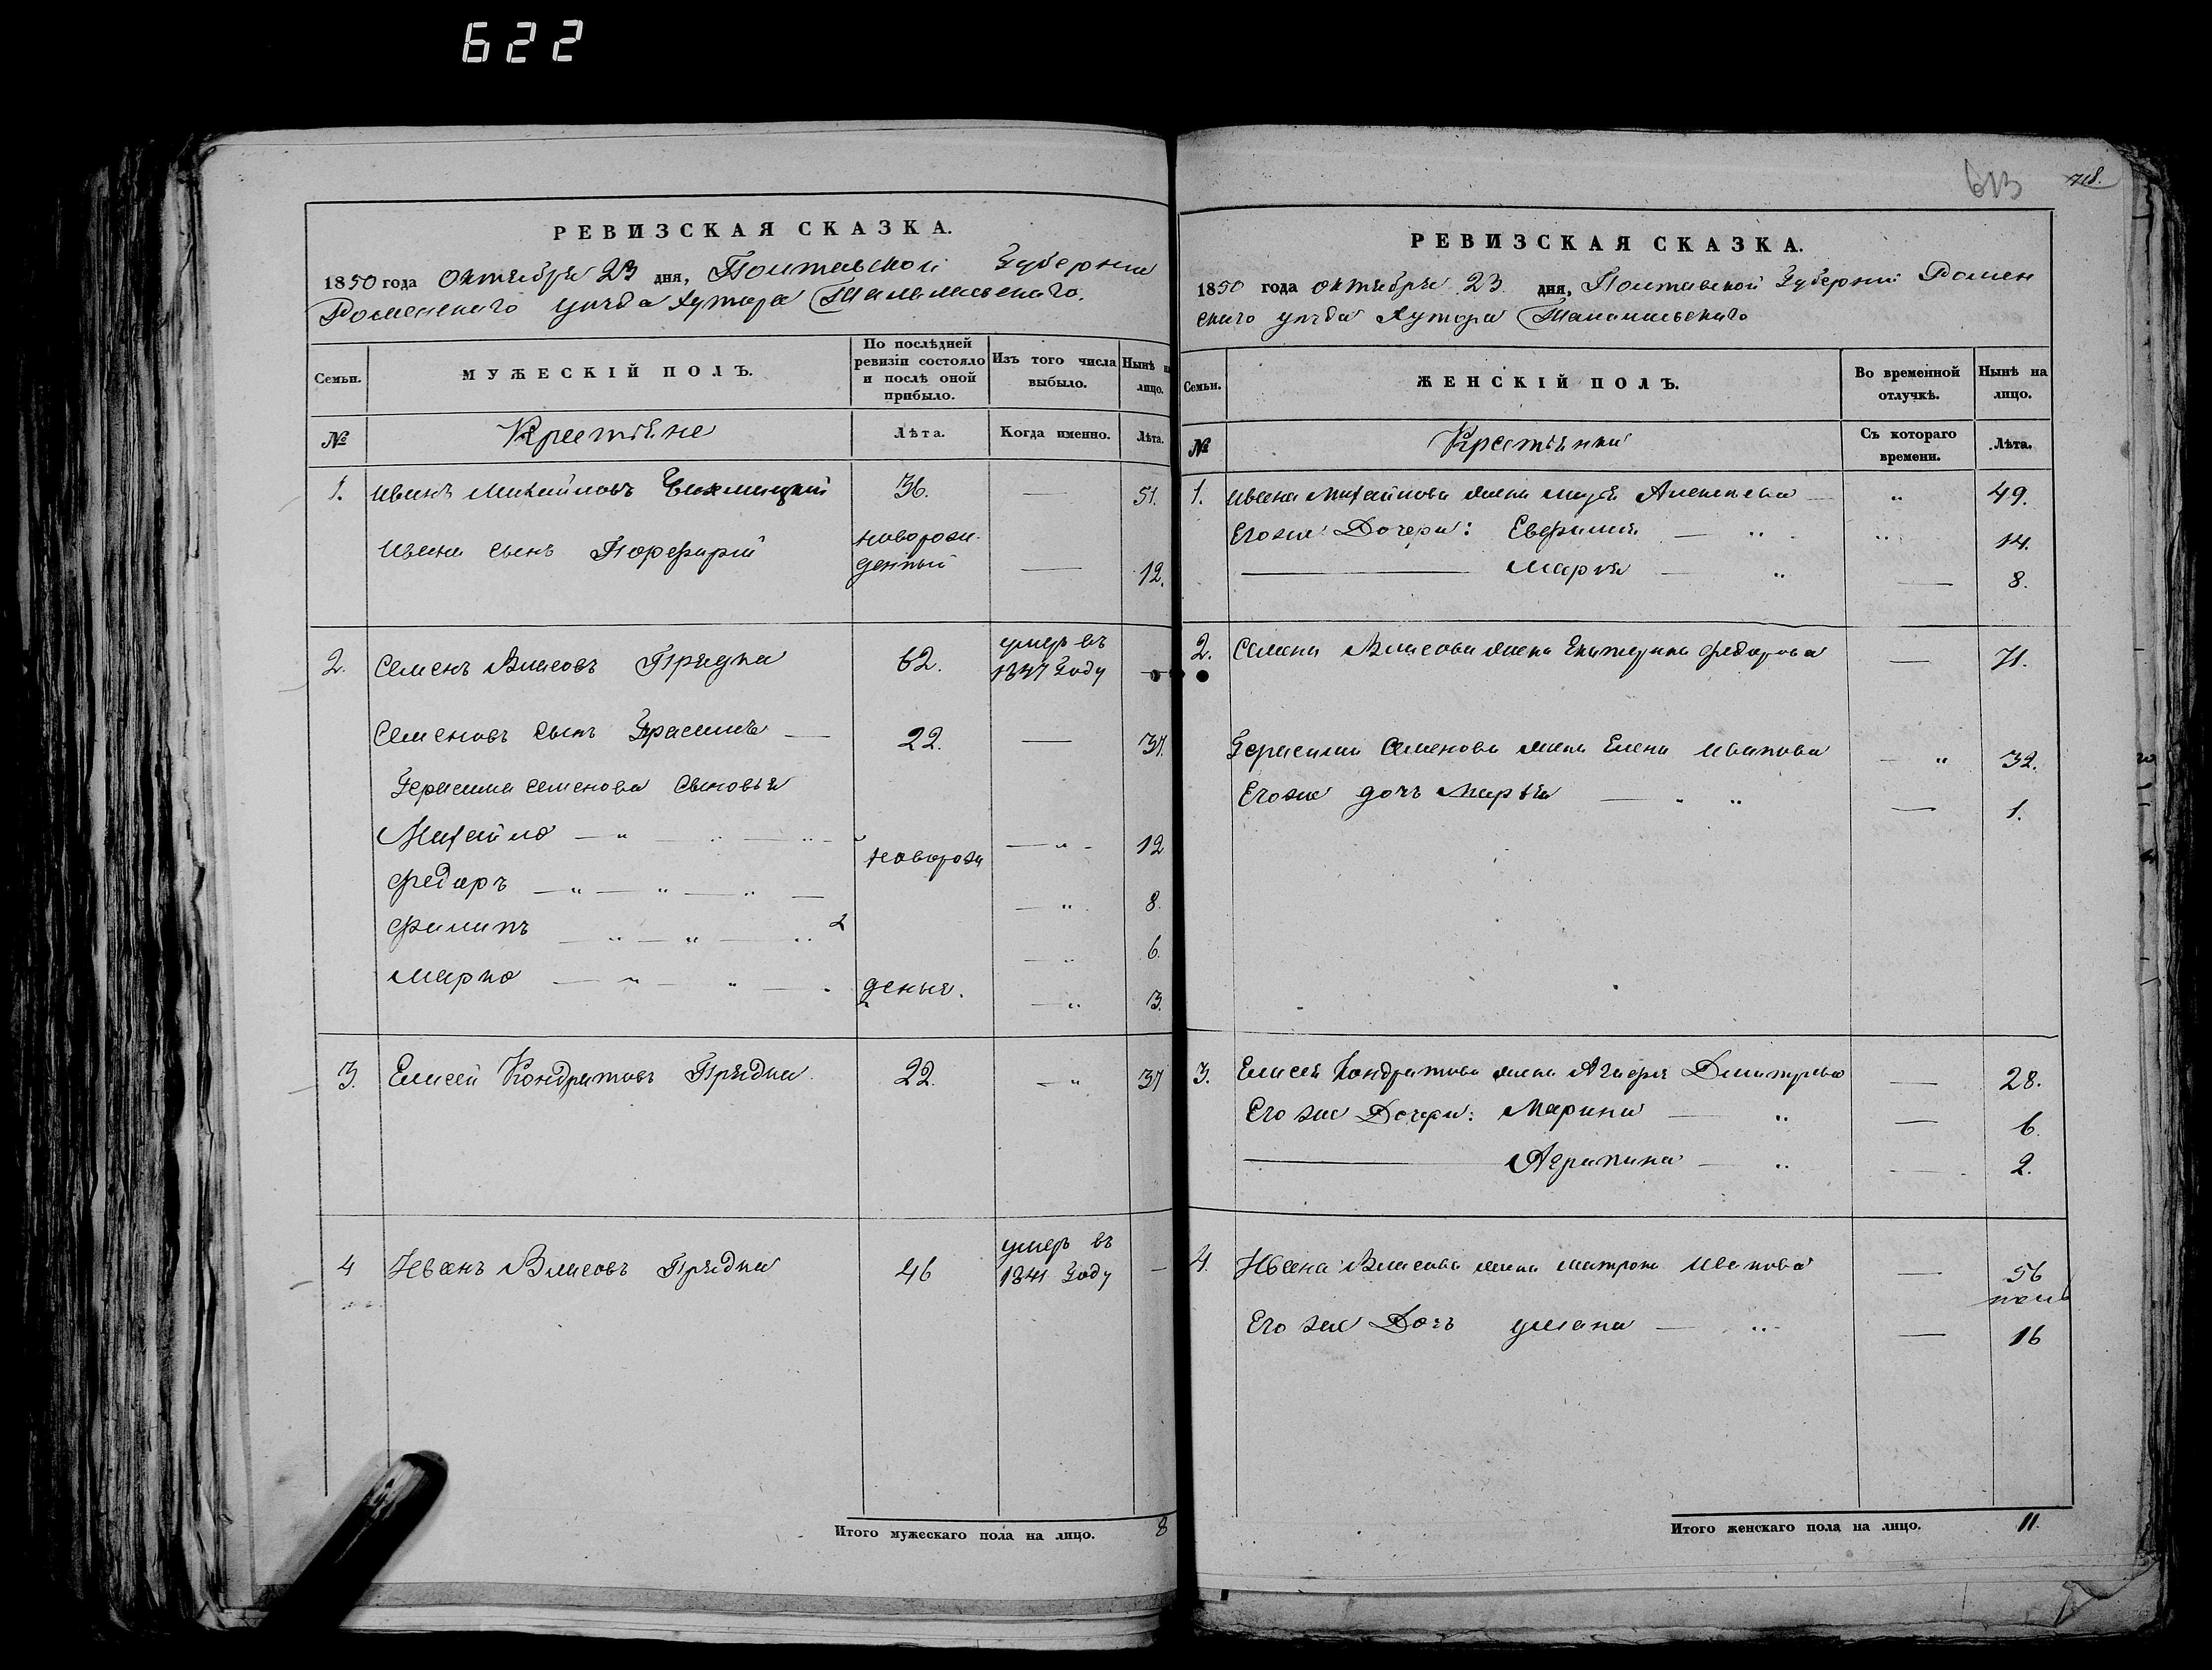 622
РЕВИЗСКАЯ СКАЗКА.
1850 года октября 23 дня, Полтавской Губернии
Роменского уѣзда хутора
МУЖЕСКІЙ ПОЛЪ.
Семьи.
По послѣдней ревизіи состояло и послѣ оной прибыло.
Изъ того числа выбыло.
Нынѣ на лицо.
№
Крестьяне
Лѣта.
Когда именно.
Лѣта.
1. Иванъ Михайловъ 36. — 51.
Ивана сынъ Порфирій новорожденный — 12.
2. Семенъ Власовъ Прядка 62. умеръ въ 1847 Году —
Семеновъ сынъ Герасимъ — 22. — 37.
Герасима Семенова сыновья
Михайло — " — " — " новорожденные. — " 12
Федоръ — " — " — " — — " 8.
Филипъ — " — " — " 2 — " 6.
Марко — " — " — — " 3.
3. Елисей Кондратовъ Прядка 22. — " 37
4 Иванъ Власовъ Прядка 46 умеръ въ 1841 Году —
Итого мужескаго пола на лицо. 8
613 718.
РЕВИЗСКАЯ СКАЗКА.
1850 года октября 23 дня, Полтавской Губерніи Ромен
скаго уѣзда Хутора
Семьи.
ЖЕНСКІЙ ПОЛЪ.
Во временной отлучкѣ.
Нынѣ на лицо.
№
Крестьянки
Съ котораго времени.
Лѣта.
1. Ивана Михайлова жена Алексѣева " 49.
Его же Дочери: Евфимія — " " 14.
— Марія — " — 8.
2. Семена Власова жена Екатерина Федорова — 71.
Герасима Семенова жена Елена Иванова — " 32.
Его же дочь Марья — " " — 1.
3. Елисея Кондратова жена Агафія Дмитріева — 28.
Его же Дочери: Марина — " — 6.
— Агрипина — " — 2.
4. Ивана Власова жена Матрона Иванова — 56
Его же Дочь уляна — " — 16
Итого женскаго пола на лицо. 11.